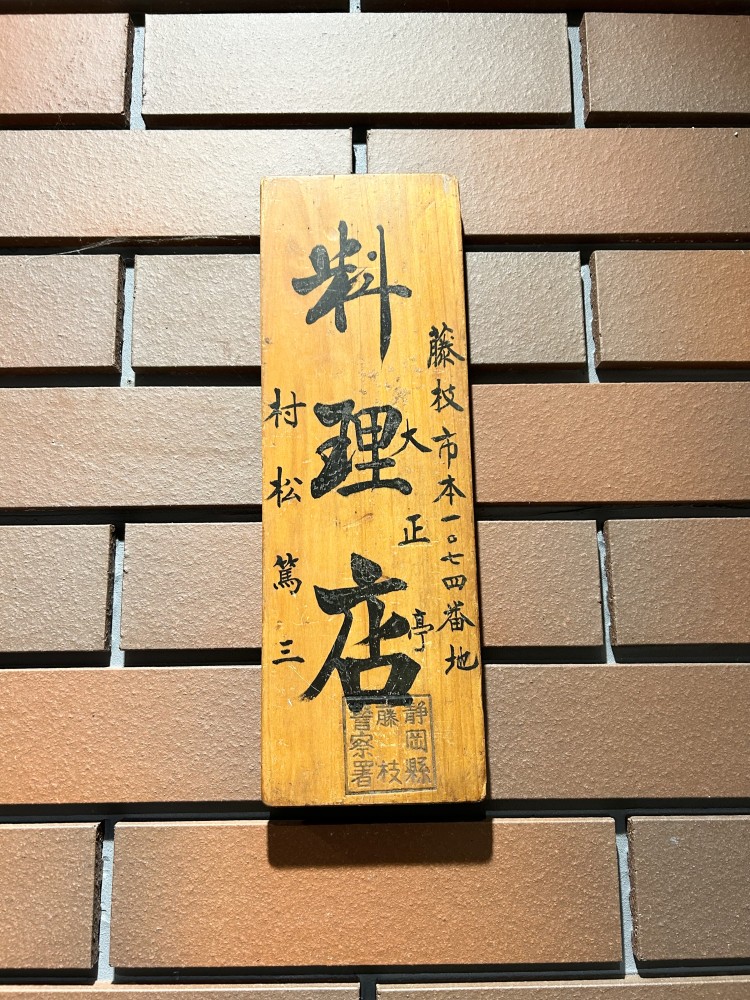 藤枝市本一〇七四番地
大正亭
料理店
村松篤三
静岡縣
藤枝
警察署